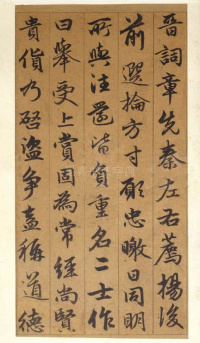 晉詞章先秦左右薦揚後
前選掄方寸願忠曒日同明
所與注皆負重名二士作
曰舉受上賞固為常經尚賢
貴貨乃啓盜爭蓋稱道德